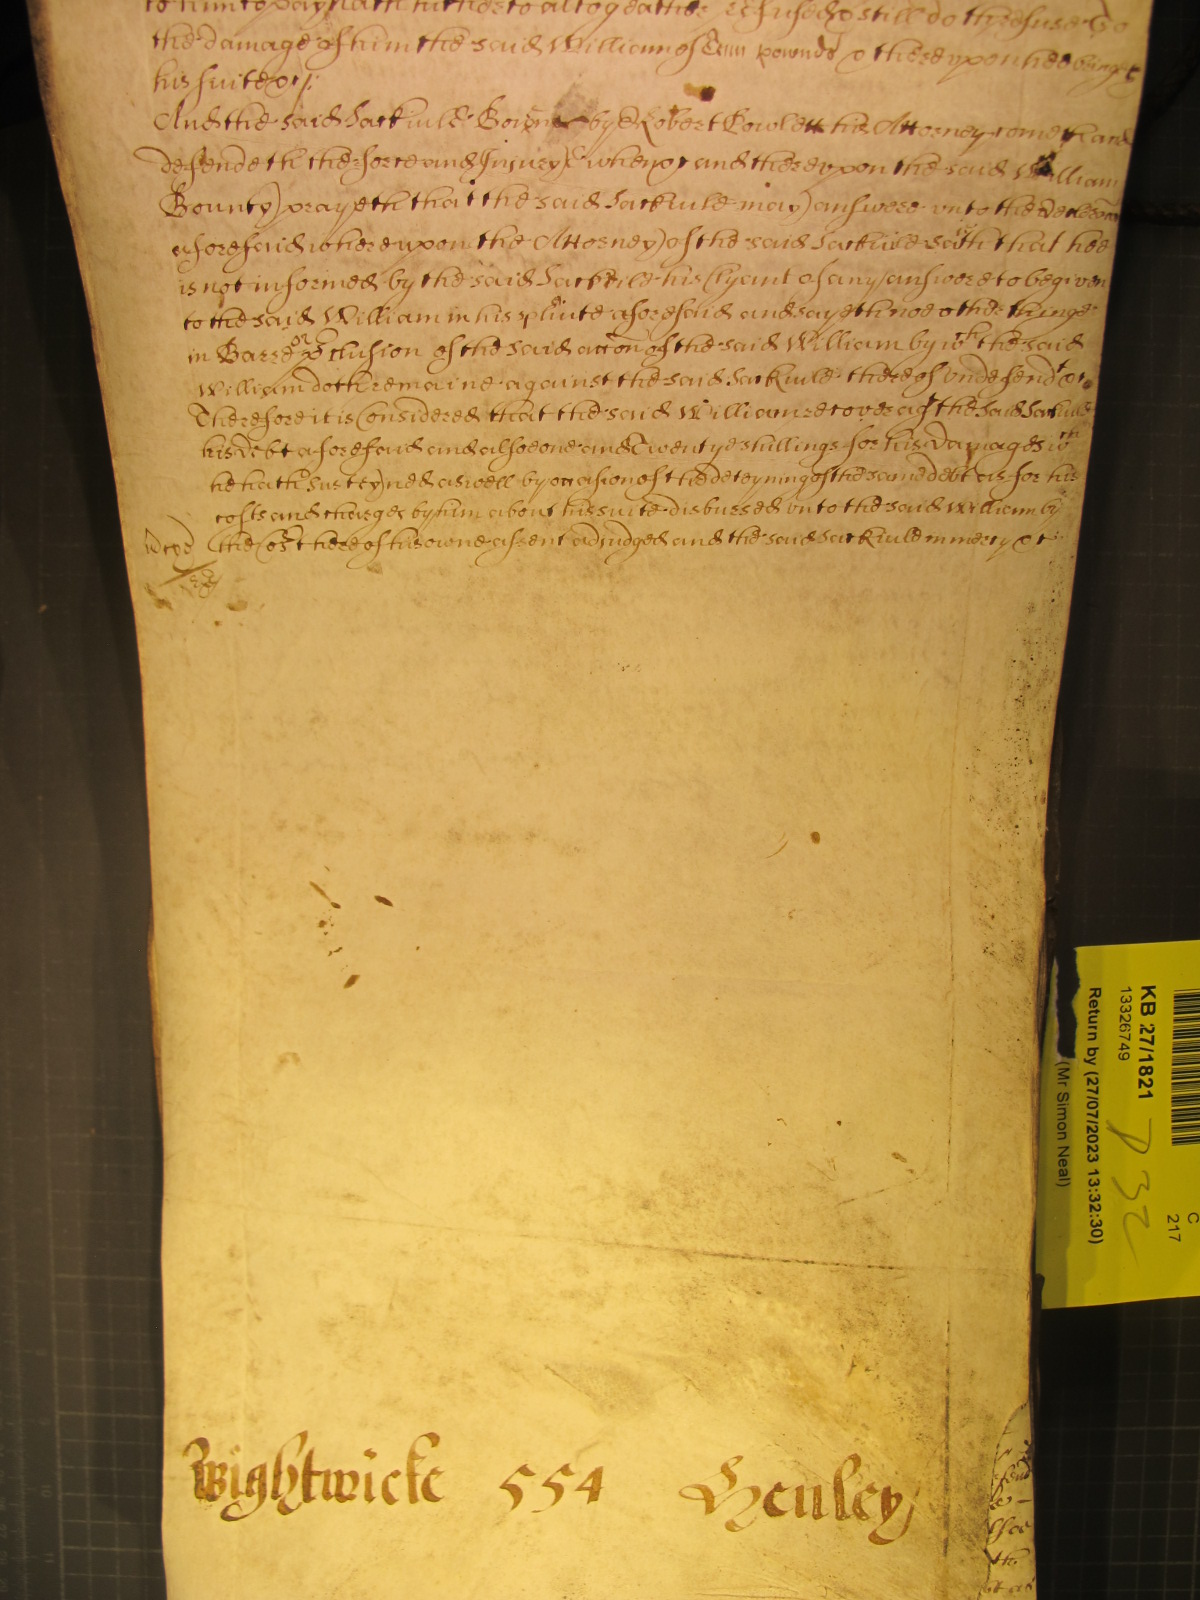 to him to pay hath hitherto altogeather refused & still do th refuse To
the damage of him the said William of Tenn pounds & thereupon hee bringeth
his suite &c/:
And the said Sackvile by Robert Rowlett his Attorney cometh and
defendeth the force and Injury when &c and thereupon the said William
Bounty prayeth that the said Sackvile may answere vnto the declaracon
aforesaid whereupon the Attorney of the said Sackvile saith that hee
is not informed by the said Sackvile his Clyant of any answere to be given
to the said William in his plainte aforesaid and sayeth noe other thinge
in Barre or p̄clusion of the said accon of the said William by wch the said
William doth remaine against the said Sackvile thereof vndefend &c
Therefore it is Considered that the said William recover agt the said Sackvile
his debt aforesaid and alsoe one and Twentye shillings for his damages wch
he hath susteyned aswell by occasion of the deteyning of the same debt as for his
costs and charges by him about his suite disbursed vnto the said William by
the Cort here of his owne assent adjudged and the said Sackvile in mercy &c
Wightwicke 554 Henley
KB 27/1821
13326749
Return by (27/07/2023 13:32:30)
(Mr Simon Neal)
C
217
P 32